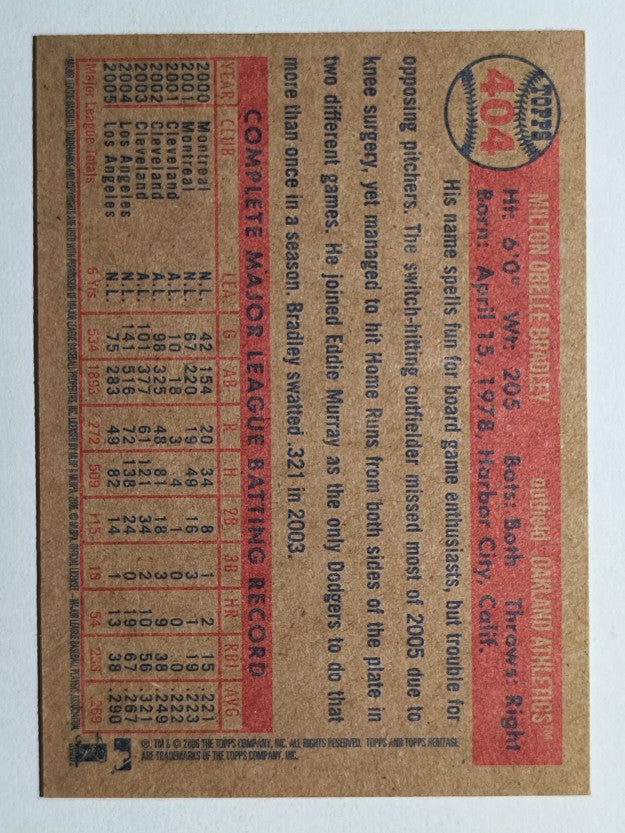 TOPPS
404
MILTON OBELLE BRADLEY outfield OAKLAND ATHLETICS™
Ht: 6'0" Wt: 205 Bats: Both Throws: Right
Born: April 15, 1978, Harbor City, Calif.
His name spells fun for board game enthusiasts, but trouble for
opposing pitchers. The switch-hitting outfielder missed most of 2005 due to
knee surgery, yet managed to hit Home Runs from both sides of the plate in
two different games. He joined Eddie Murray as the only Dodgers to do that
more than once in a season. Bradley swatted .321 in 2003.
COMPLETE MAJOR LEAGUE BATTING RECORD
YEAR CLUB LEA G AB R H 2B 3B HR RBI AVG
2000 Montreal N.L. 42 154 20 34 8 1 2 15 .221
2001 Montreal N.L. 67 220 19 49 16 3 1 19 .223
2001 Cleveland A.L. 10 18 3 4 1 0 0 0 .222
2002 Cleveland A.L. 98 325 48 81 18 3 9 38 .249
2003 Cleveland A.L. 101 377 61 121 34 2 10 56 .321
2004 Los Angeles N.L. 141 516 72 138 24 0 19 67 .267
2005 Los Angeles N.L. 75 283 49 82 14 1 13 38 .290
Major League Totals 6 Yrs. 534 1893 272 509 115 10 54 233 .269
®, TM & © 2006 THE TOPPS COMPANY, INC. ALL RIGHTS RESERVED. TOPPS AND TOPPS HERITAGE
ARE TRADEMARKS OF THE TOPPS COMPANY, INC.